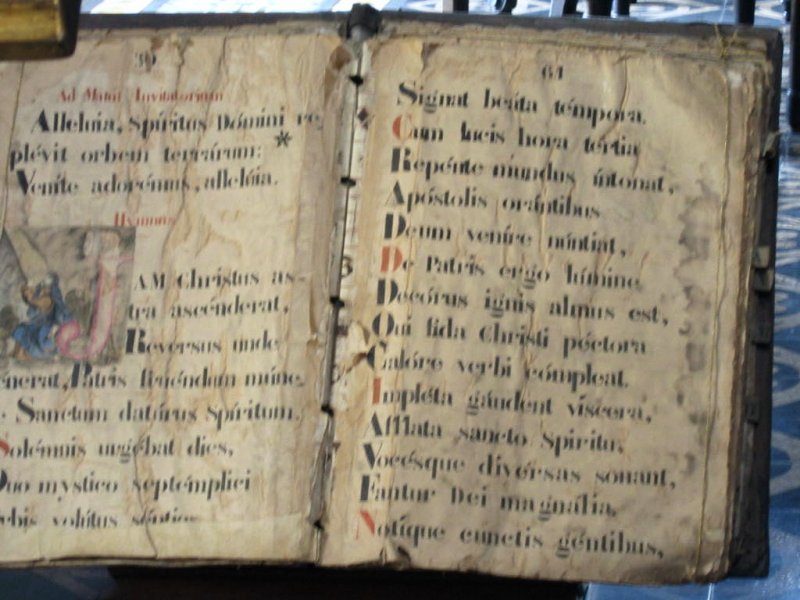 39
Ad Matut Invitatorium
Alleluia, Spíritus Dómini re
plévit orbem terrárum: *
Veníte adorémus, allelúia.
Hymnus
JAM Christus as-
tra ascénderat,
Revérsus unde
enerat, Patris fruéndum múne,
Sanctum datúrus Spíritum.
Solémnis urgébat dies,
Quo mystico septémplici
rbis volútus sépties
61
Signat beáta témpora.
Cum lucis hora tértia
Repénte mundus íntonat,
Apóstolis orántibus
Deum veníre núntiat,
De Patris ergo lúmine
Decórus ignis almus est,
Qui fida Christi péctora
Calóre verbi cómpleat.
Impléta gáudent víscera,
Afflata sancto Spíritu,
Vocésque divérsas sonant,
Fantur Dei magnália,
Notíque cunctis géntibus,